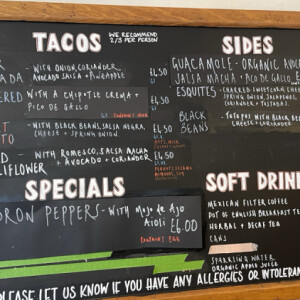 TACOS
WE RECOMMEND
2/3 PER PERSON
- WITH ONION, CORIANDER,
AVOCADO SALSA + PINEAPPLE
£4.50
- WITH A CHIPOTLE CREMA +
PICO DE GALLO
£4.50
- WITH BLACK BEANS, SALSA NEGRA,
CHEESE + SPRING ONION
£4.50
- WITH ROMESCO, SALSA MACHA
+ AVOCADO + CORIANDER
£4.50
SIDES
GUACAMOLE - ORGANIC
SALSA MACHA + PICO DE GALLO
ESQUITES - CHARRED SWEETCORN,
SPRING ONION, JALAPENOS,
CORIANDER + TOSTADAS.
BLACK
BEANS
- TOPPED WITH BLACK
CHEESE + CORIANDER
SPECIALS
PEPPERS - WITH Mojo de Ajo
Aioli £6.00
CONTAINS: EGG
SOFT DRIN
MEXICAN FILTER COFFEE
POT OF ENGLISH BREAKFAST TEA
HERBAL + DECAF TEA
CANS
SPARKLING WATER
ORGANIC APPLE JUICE
PLEASE LET US KNOW IF YOU HAVE ANY ALLERGIES OR INTOLERAN